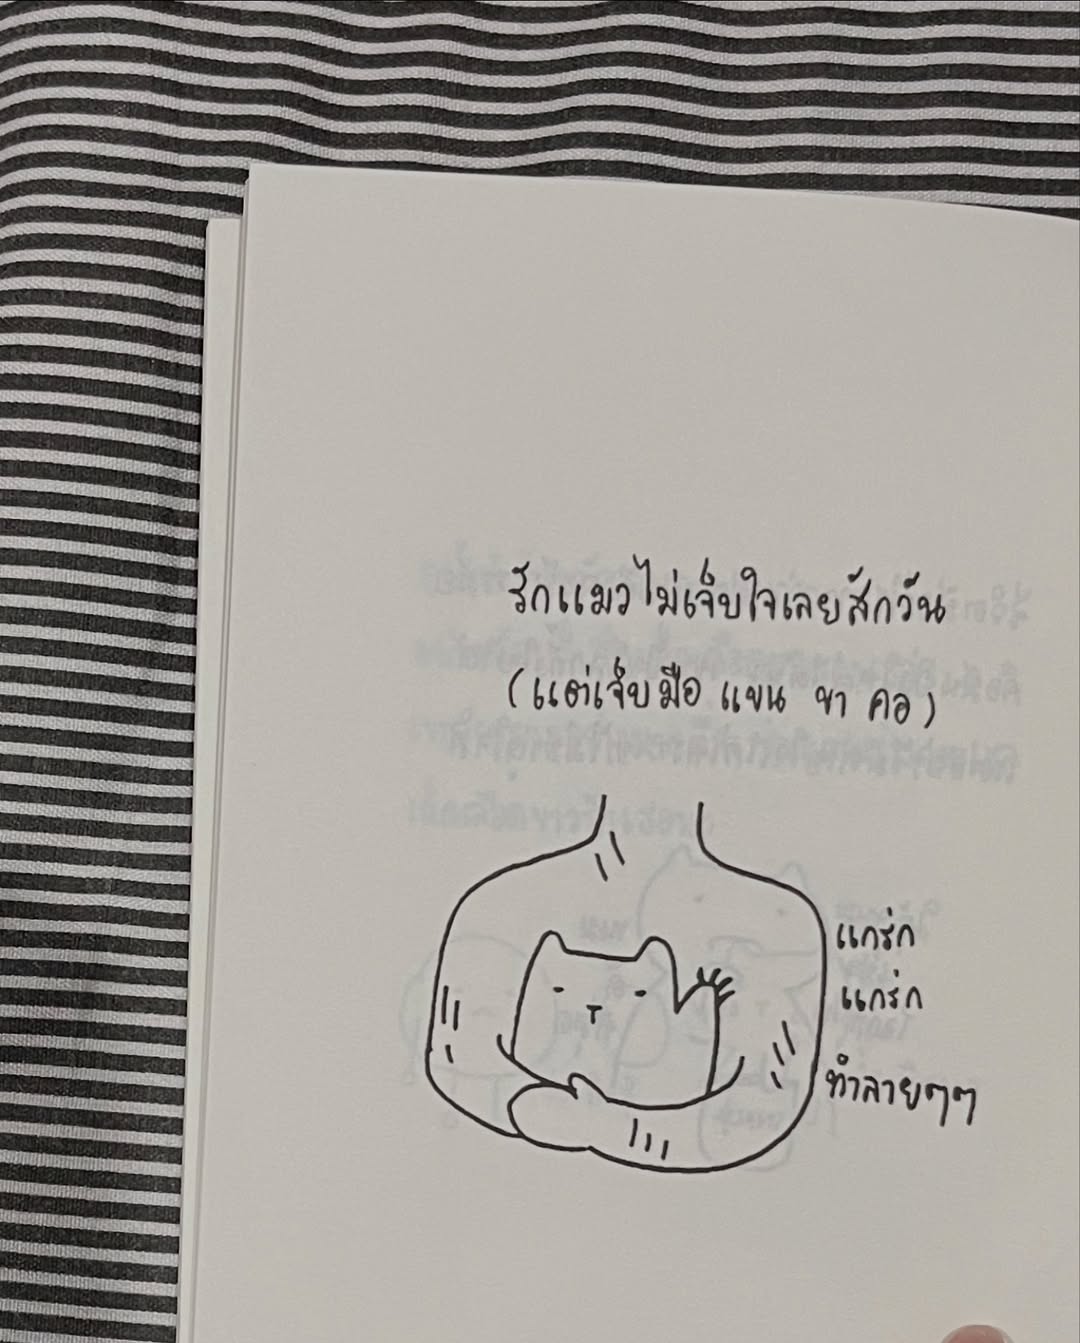 รักแมวไม่เจ็บใจเลยสักวัน
(แต่เจ็บมือ แขน ขา คอ)
แกร่ก
แกร่ก
ทำลายๆๆ